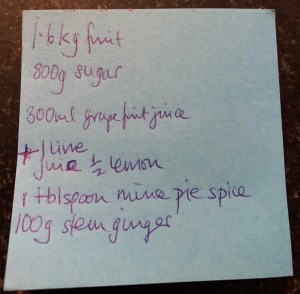 1.6kg fruit
800g sugar
300ml grapefruit juice
1 lime
juice 1/2 lemon
1 tblspoon mince pie spice
100g stem ginger